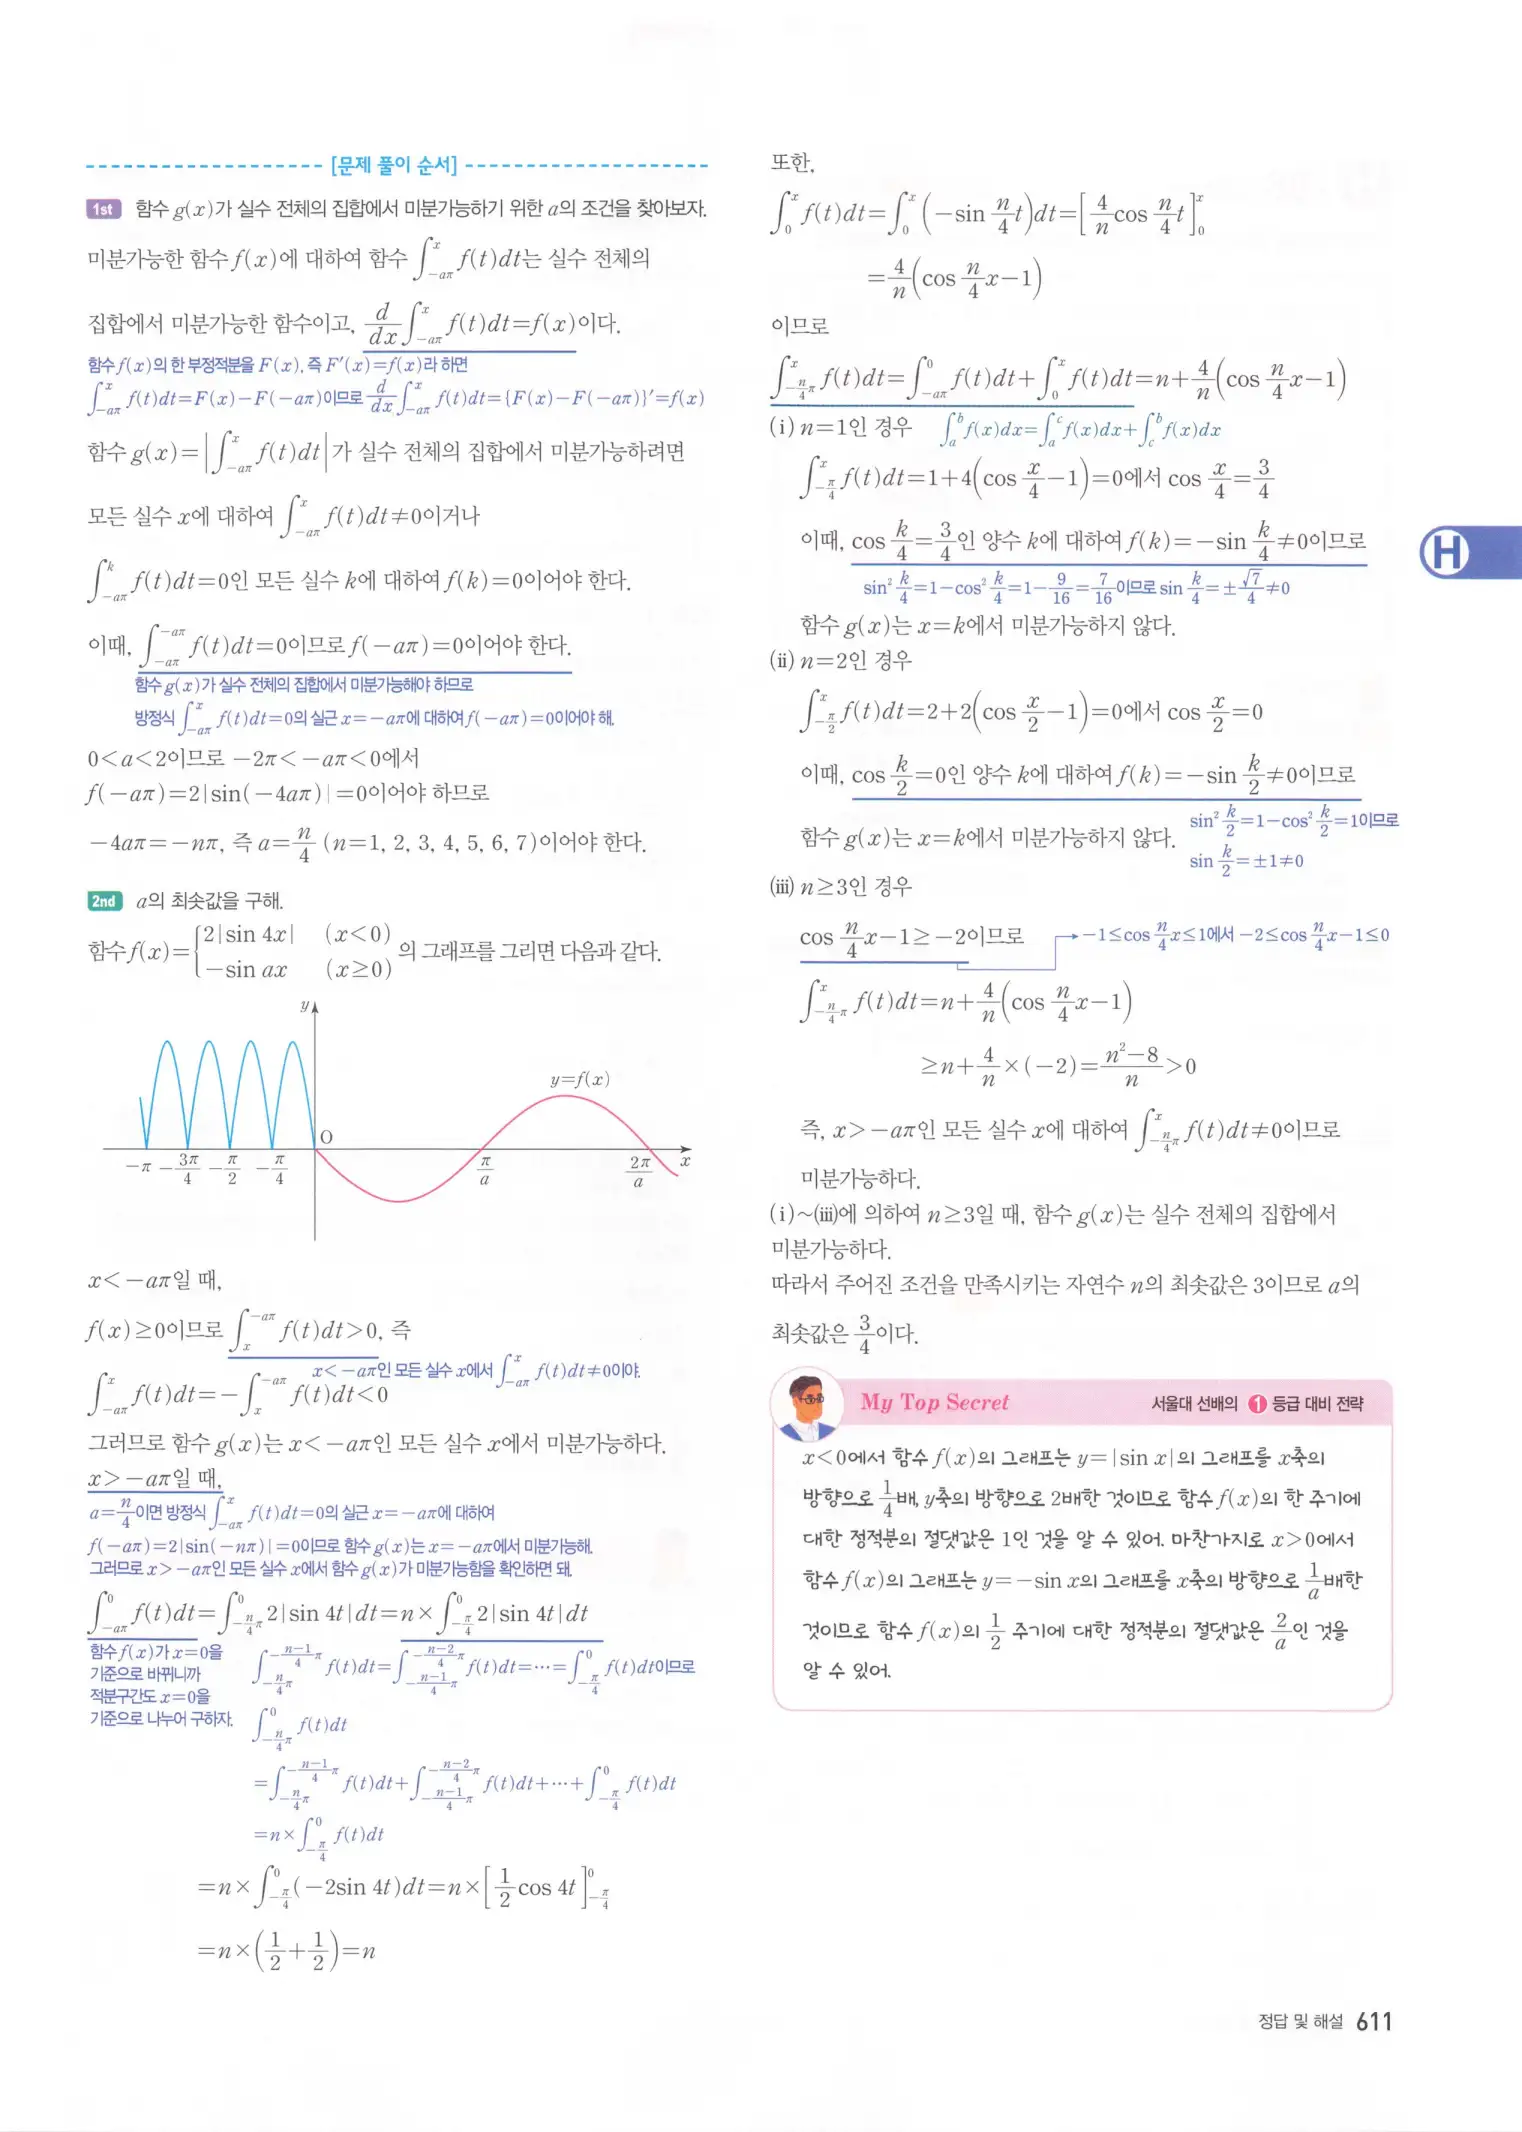 [문제 풀이 순서]
1st 함수 g(x)가 실수 전체의 집합에서 미분가능하기 위한 a의 조건을 찾아보자.
미분가능한 함수 f(x)에 대하여 함수 ∫_{-aπ}^{x} f(t)dt는 실수 전체의
집합에서 미분가능한 함수이고, d/dx ∫_{-aπ}^{x} f(t)dt=f(x)이다.
함수 f(x)의 한 부정적분을 F(x), 즉 F'(x)=f(x)라 하면
∫_{-aπ}^{x} f(t)dt=F(x)-F(-aπ)이므로 d/dx ∫_{-aπ}^{x} f(t)dt={F(x)-F(-aπ)}'=f(x)
함수 g(x)=|∫_{-aπ}^{x} f(t)dt|가 실수 전체의 집합에서 미분가능하려면
모든 실수 x에 대하여 ∫_{-aπ}^{x} f(t)dt≠0이거나
∫_{-aπ}^{k} f(t)dt=0인 모든 실수 k에 대하여 f(k)=0이어야 한다.
이때, ∫_{-aπ}^{-aπ} f(t)dt=0이므로 f(-aπ)=0이어야 한다.
함수 g(x)가 실수 전체의 집합에서 미분가능해야 하므로
방정식 ∫_{-aπ}^{x} f(t)dt=0의 실근 x=-aπ에 대하여 f(-aπ)=0이어야 해.
0<a<2이므로 -2π<-aπ<0에서
f(-aπ)=2|sin(-4aπ)|=0이어야 하므로
-4aπ=-nπ, 즉 a=n/4 (n=1, 2, 3, 4, 5, 6, 7)이어야 한다.
2nd a의 최솟값을 구해.
함수 f(x)={2|sin 4x| (x<0)
-sin ax (x≥0) 의 그래프를 그리면 다음과 같다.
y
y=f(x)
O
-π -3π/4 -π/2 -π/4 π/a 2π/a x
x<-aπ일 때,
f(x)≥0이므로 ∫_{x}^{-aπ} f(t)dt>0, 즉
x<-aπ인 모든 실수 x에서 ∫_{-aπ}^{x} f(t)dt≠0이야.
∫_{-aπ}^{x} f(t)dt=-∫_{x}^{-aπ} f(t)dt<0
그러므로 함수 g(x)는 x<-aπ인 모든 실수 x에서 미분가능하다.
x>-aπ일 때,
a=n/4이면 방정식 ∫_{-aπ}^{x} f(t)dt=0의 실근 x=-aπ에 대하여
f(-aπ)=2|sin(-nπ)|=0이므로 함수 g(x)는 x=-aπ에서 미분가능해.
그러므로 x>-aπ인 모든 실수 x에서 함수 g(x)가 미분가능함을 확인하면 돼.
∫_{-aπ}^{0} f(t)dt=∫_{-n/4 π}^{0} 2|sin 4t|dt=n×∫_{-π/4}^{0} 2|sin 4t|dt
함수 f(x)가 x=0을
기준으로 바뀌니까
적분구간도 x=0을
기준으로 나누어 구하자.
∫_{-n/4 π}^{-(n-1)/4 π} f(t)dt=∫_{-(n-1)/4 π}^{-(n-2)/4 π} f(t)dt=⋯=∫_{-π/4}^{0} f(t)dt이므로
∫_{-n/4 π}^{0} f(t)dt
=∫_{-n/4 π}^{-(n-1)/4 π} f(t)dt+∫_{-(n-1)/4 π}^{-(n-2)/4 π} f(t)dt+⋯+∫_{-π/4}^{0} f(t)dt
=n×∫_{-π/4}^{0} f(t)dt
=n×∫_{-π/4}^{0} (-2sin 4t)dt=n×[1/2 cos 4t]_{-π/4}^{0}
=n×(1/2+1/2)=n
또한,
∫_{0}^{x} f(t)dt=∫_{0}^{x} (-sin n/4 t)dt=[4/n cos n/4 t]_{0}^{x}
=4/n(cos n/4 x-1)
이므로
∫_{-n/4 π}^{x} f(t)dt=∫_{-aπ}^{0} f(t)dt+∫_{0}^{x} f(t)dt=n+4/n(cos n/4 x-1)
(ⅰ) n=1인 경우 ∫_{a}^{b} f(x)dx=∫_{a}^{c} f(x)dx+∫_{c}^{b} f(x)dx
∫_{-π/4}^{x} f(t)dt=1+4(cos x/4-1)=0에서 cos x/4=3/4
이때, cos k/4=3/4인 양수 k에 대하여 f(k)=-sin k/4≠0이므로
sin² k/4=1-cos² k/4=1-9/16=7/16이므로 sin k/4=±√7/4≠0
함수 g(x)는 x=k에서 미분가능하지 않다.
(ⅱ) n=2인 경우
∫_{-π/2}^{x} f(t)dt=2+2(cos x/2-1)=0에서 cos x/2=0
이때, cos k/2=0인 양수 k에 대하여 f(k)=-sin k/2≠0이므로
함수 g(x)는 x=k에서 미분가능하지 않다.
sin² k/2=1-cos² k/2=1이므로
sin k/2=±1≠0
(ⅲ) n≥3인 경우
cos n/4 x-1≥-2이므로 → -1≤cos n/4 x≤1에서 -2≤cos n/4 x-1≤0
∫_{-n/4 π}^{x} f(t)dt=n+4/n(cos n/4 x-1)
≥n+4/n×(-2)=(n²-8)/n>0
즉, x>-aπ인 모든 실수 x에 대하여 ∫_{-n/4 π}^{x} f(t)dt≠0이므로
미분가능하다.
(ⅰ)~(ⅲ)에 의하여 n≥3일 때, 함수 g(x)는 실수 전체의 집합에서
미분가능하다.
따라서 주어진 조건을 만족시키는 자연수 n의 최솟값은 3이므로 a의
최솟값은 3/4이다.
My Top Secret 서울대 선배의 1 등급 대비 전략
x<0에서 함수 f(x)의 그래프는 y=|sin x|의 그래프를 x축의
방향으로 1/4배, y축의 방향으로 2배한 것이므로 함수 f(x)의 한 주기에
대한 정적분의 절댓값은 1인 것을 알 수 있어. 마찬가지로 x>0에서
함수 f(x)의 그래프는 y=-sin x의 그래프를 x축의 방향으로 1/a배한
것이므로 함수 f(x)의 1/2 주기에 대한 정적분의 절댓값은 2/a인 것을
알 수 있어.
H
정답 및 해설 611